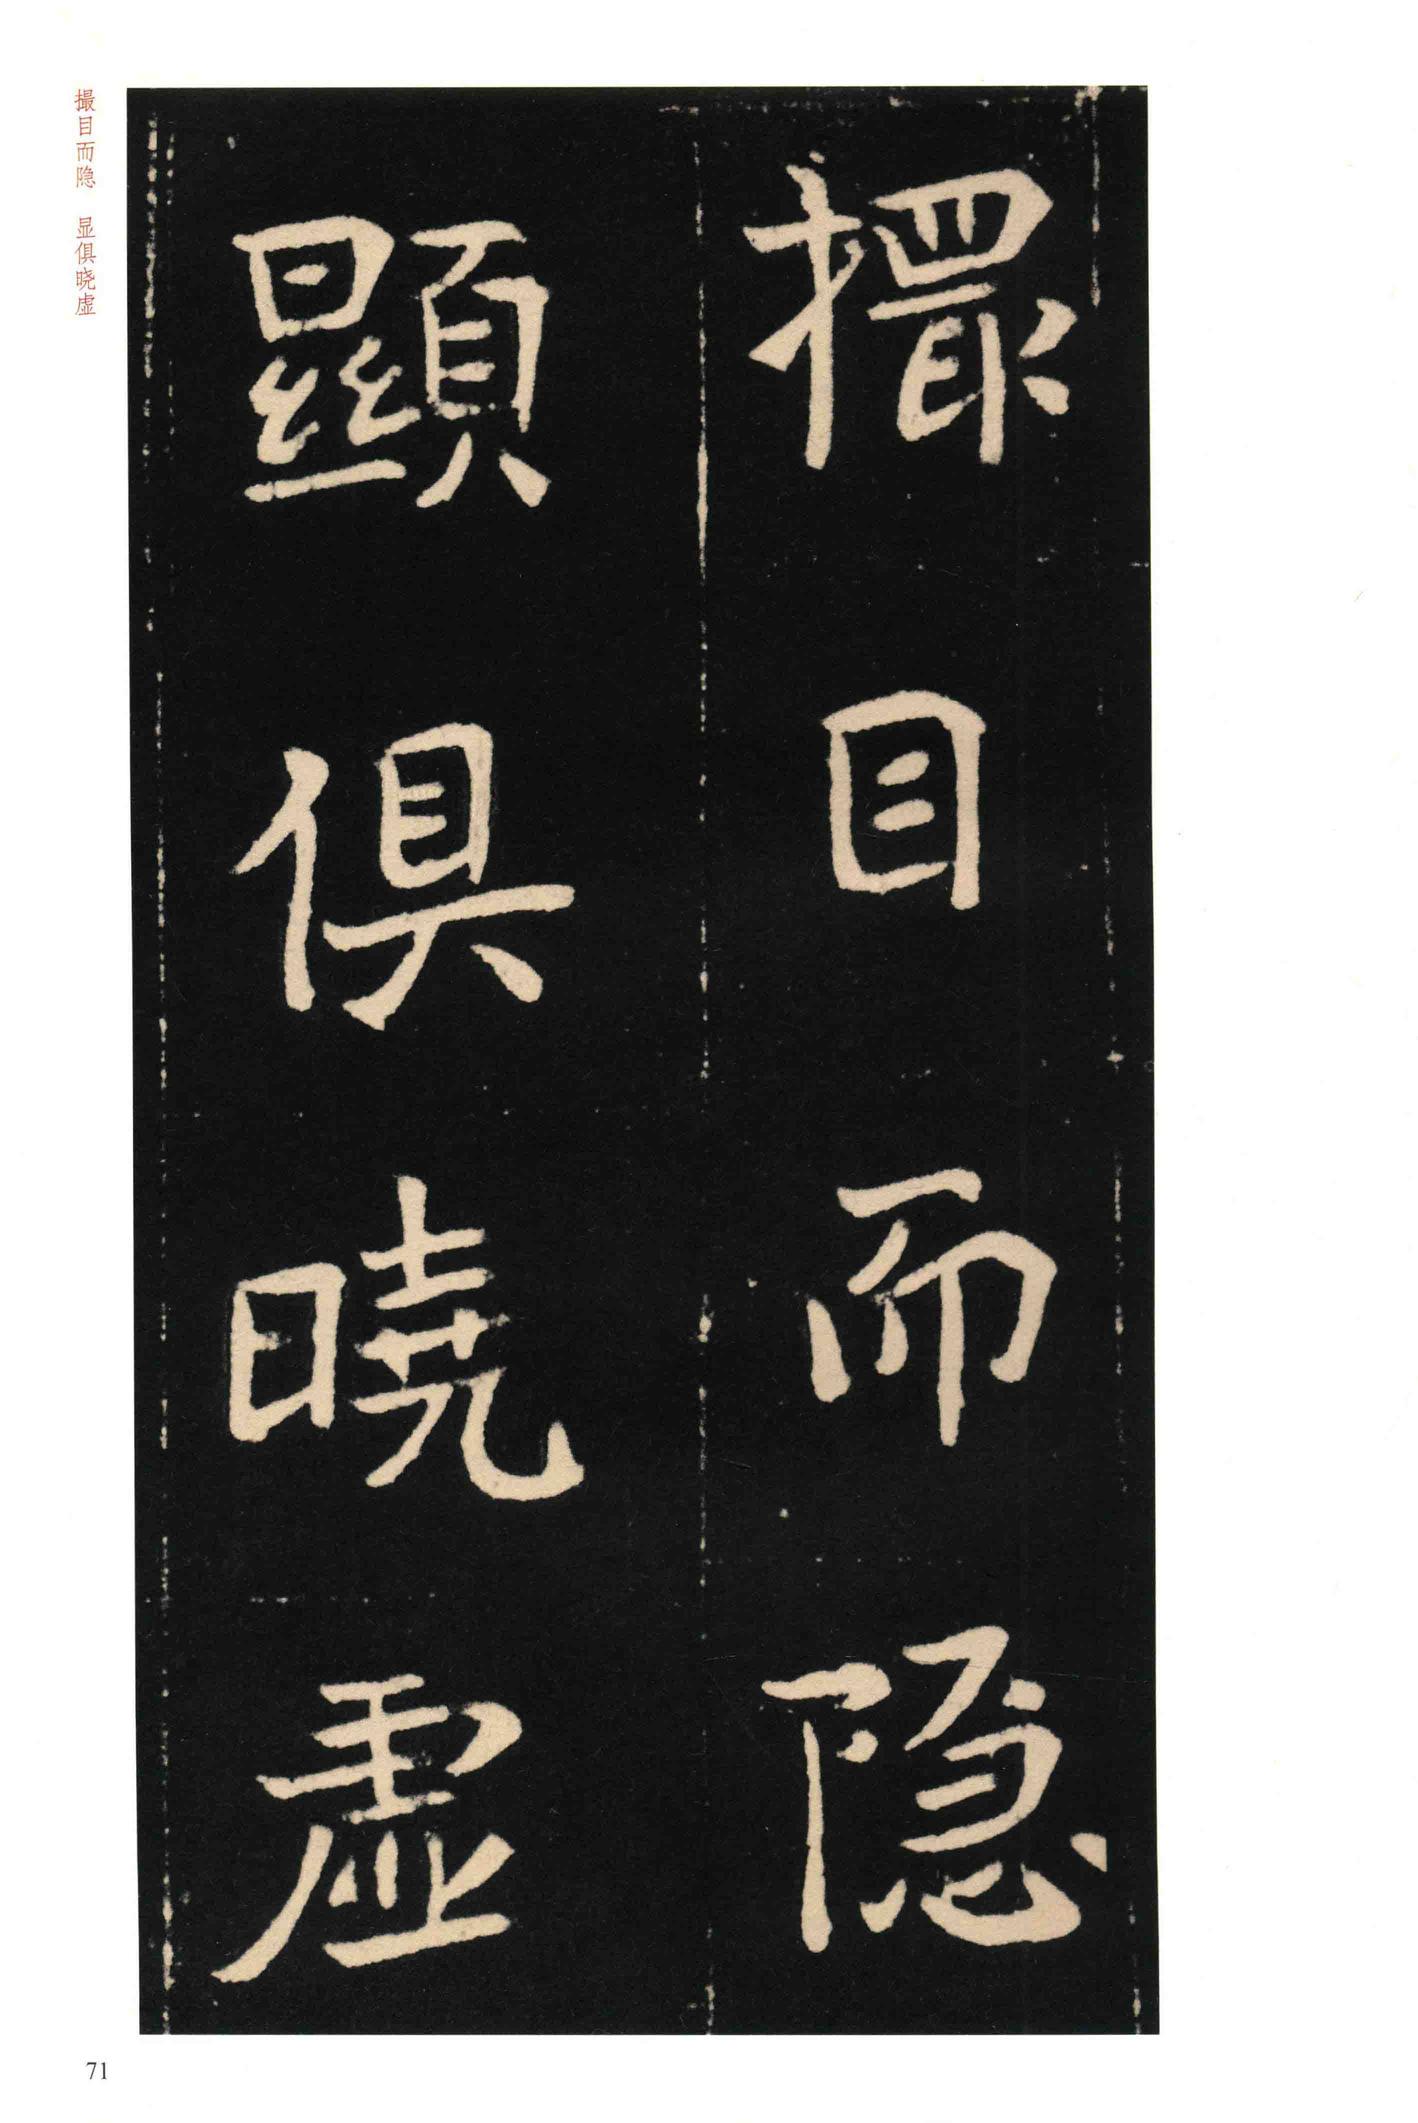 撮目而隐
顯俱曉虛
撮目而隐 显俱晓虚
71